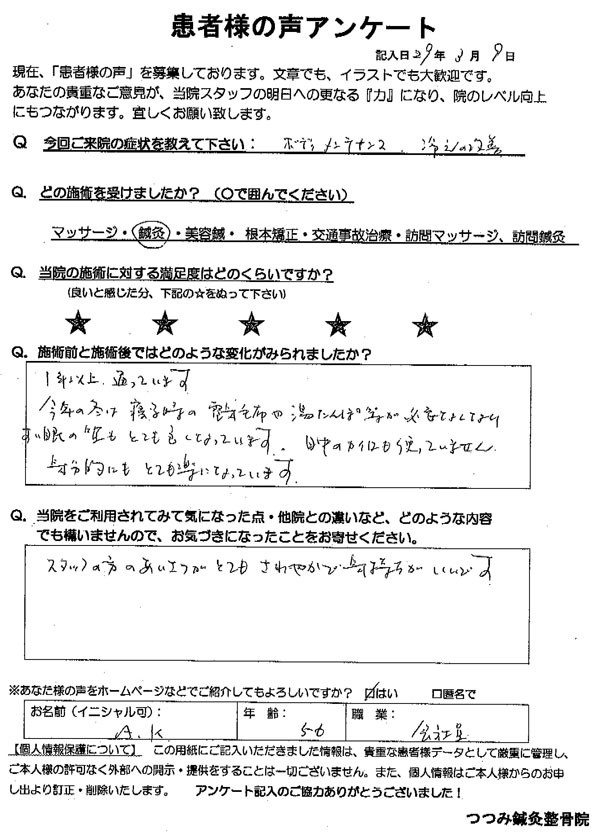 患者様の声アンケート
記入日29年3月9日
現在、「患者様の声」を募集しております。文章でも、イラストでも大歓迎です。
あなたの貴重なご意見が、当院スタッフの明日への更なる『力』になり、院のレベル向上
にもつながります。宜しくお願い致します。
Q 今回ご来院の症状を教えて下さい： ボディメンテナンス、冷えの改善
Q. どの施術を受けましたか？（〇で囲んでください）
マッサージ・鍼灸・美容鍼・根本矯正・交通事故治療・訪問マッサージ、訪問鍼灸
Q. 当院の施術に対する満足度はどのくらいですか？
（良いと感じた分、下記の☆をぬって下さい）
★ ★ ★ ★ ★
Q. 施術前と施術後ではどのような変化がみられましたか？
1年以上、通っています
今年の冬は寝る時の電気毛布や湯たんぽ等が必要なくなり
睡眠の質もとても良くなっています。日中のカイロも使っていません
気分的にもとても楽になっています
Q. 当院をご利用されてみて気になった点・他院との違いなど、どのような内容
でも構いませんので、お気づきになったことをお寄せください。
スタッフの方のあいさつがとてもさわやかで気持ちがいいです
※あなた様の声をホームページなどでご紹介してもよろしいですか？ ☑はい □匿名で
お名前（イニシャル可）： A.K 年齢： 56 職業： 会社員
【個人情報保護について】 この用紙にご記入いただきました情報は、貴重な患者様データとして厳重に管理し、
ご本人様の許可なく外部への開示・提供をすることは一切ございません。また、個人情報はご本人様からのお申
し出より訂正・削除いたします。 アンケート記入のご協力ありがとうございました！
つつみ鍼灸整骨院